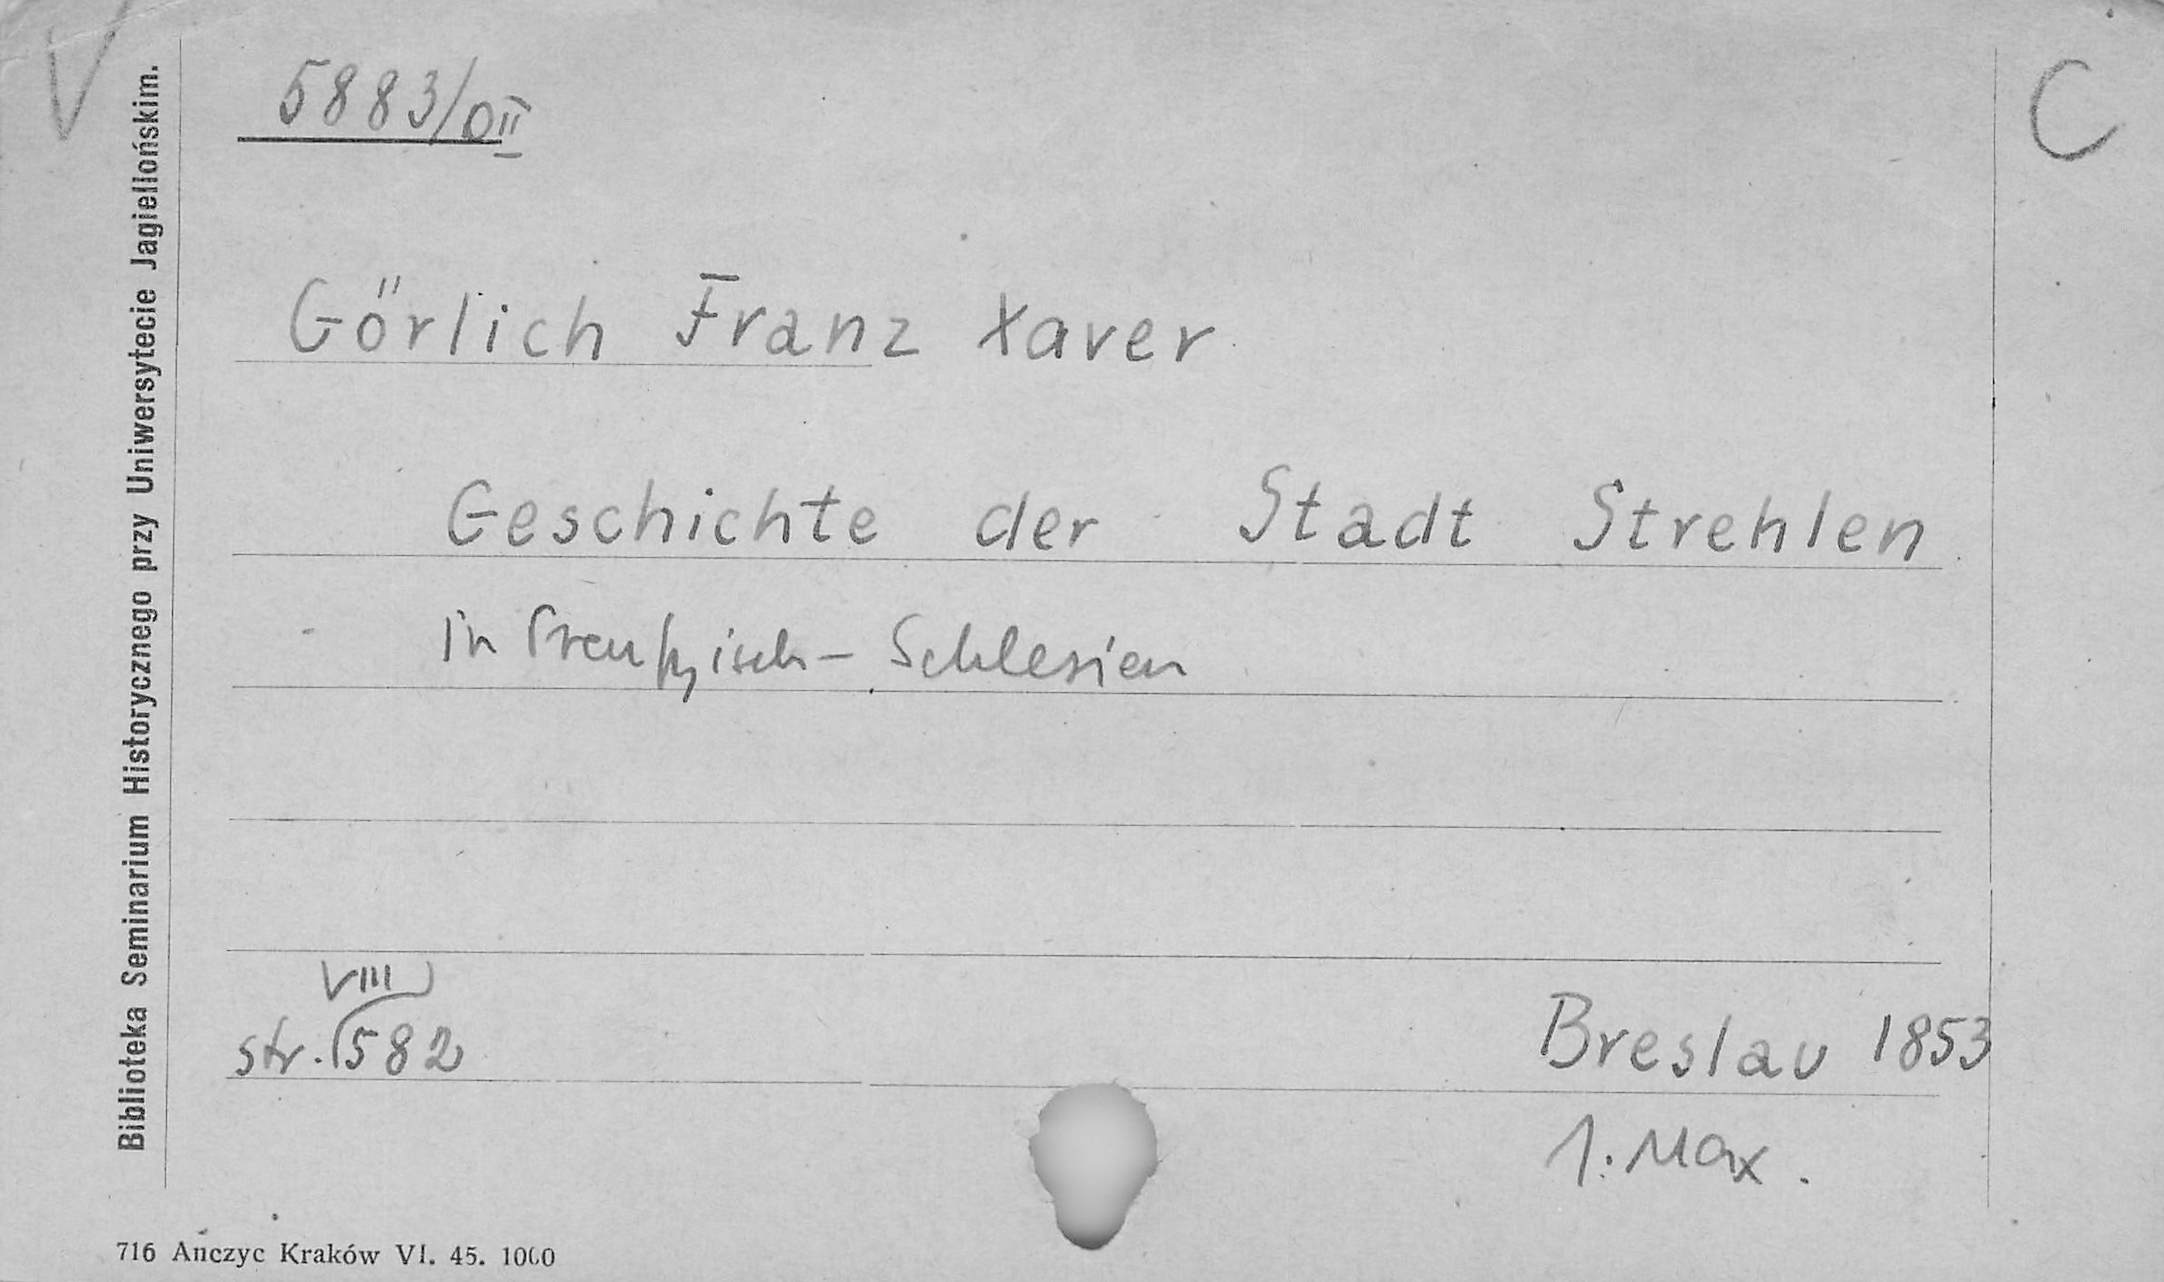 V
5883/OII
C
Biblioteka Seminarium Historycznego przy Uniwersytecie Jagiellońskim.
Görlich Franz Xaver
Geschichte der Stadt Strehlen
in Preußisch-Schlesien
VIII
str. 582
Breslau 1853
1. Max.
716 Anczyc Kraków VI. 45. 1000